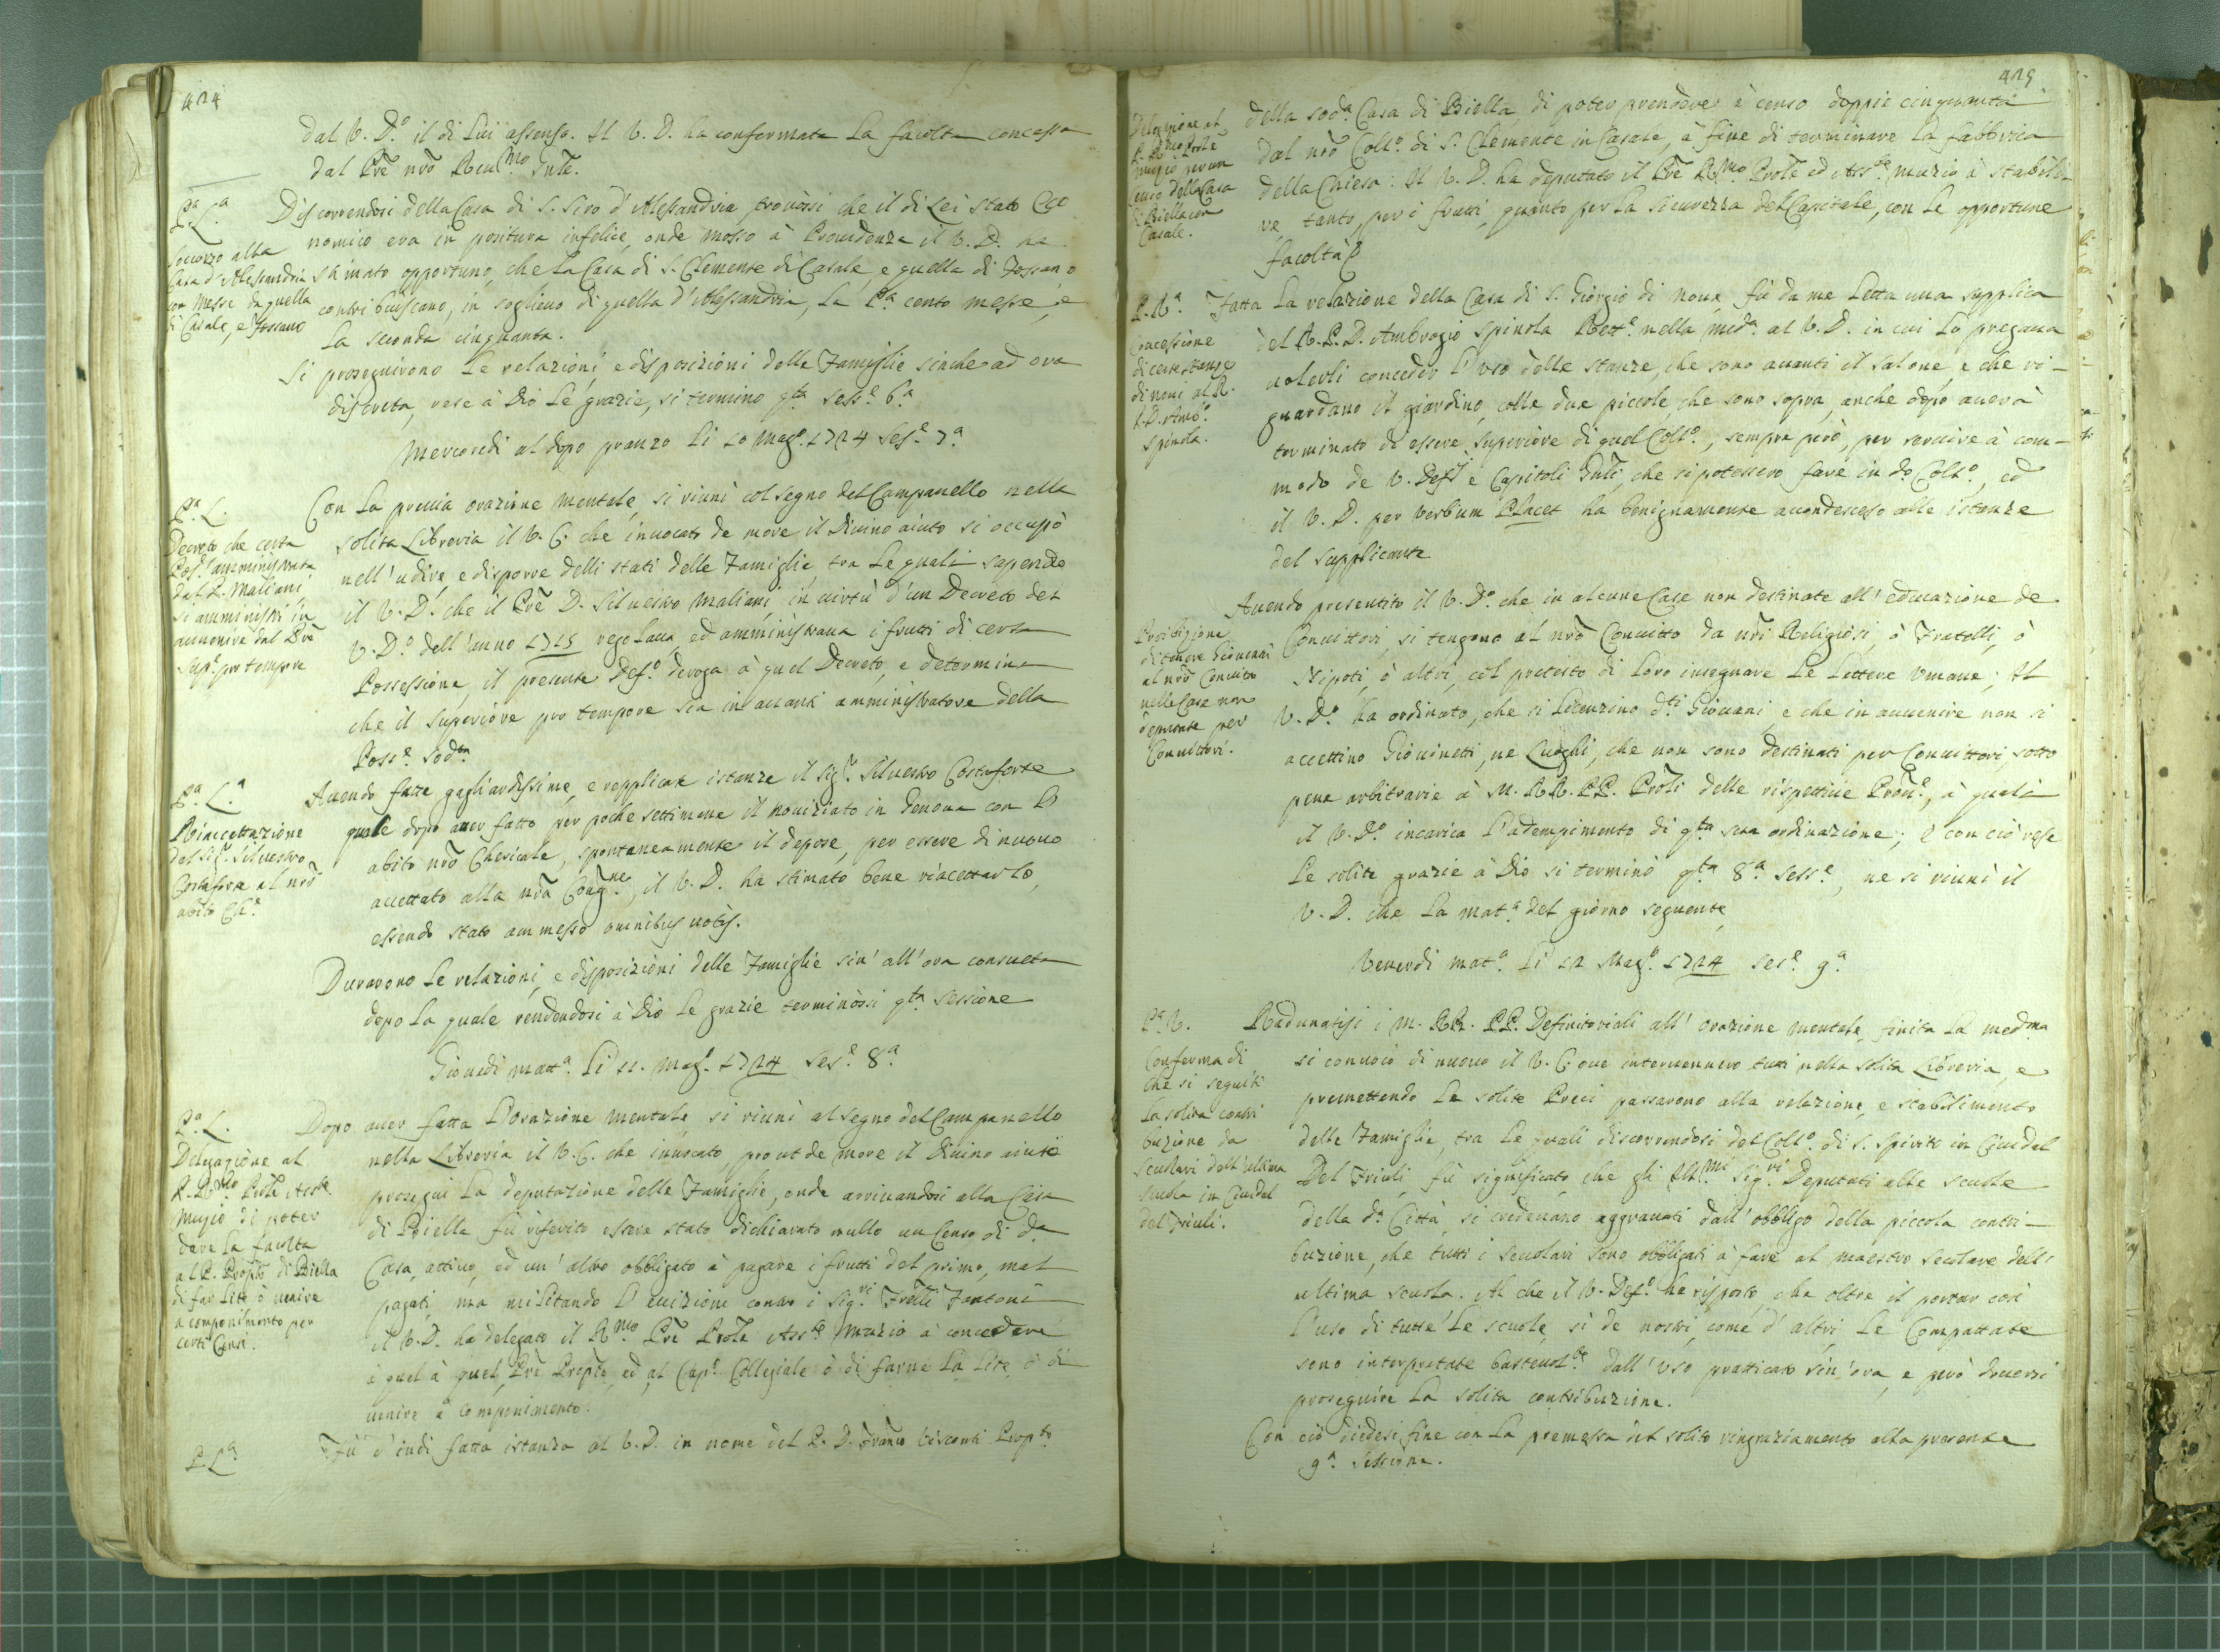 424
dal V. D.º il di lui assenso. Il V. D. ha confermata la facoltà concessa
dal Prē nr̄o Reul.mo Gnl̄e.
P.a L.a
Soccorso alla
Casa d'Alessandria
con Messe da quella
di Casale, e Fossano
Discorrendosi della Casa di S. Siro d'Alessandria trouossi che il di Lei stato Eco
nomico era in positura infelice, onde mosso à Prouidenza il V. D. ha
stimato opportuno, che la Casa di S. Clemente di Casale, e quella di Fossano
contribuiscano, in sollieuo di quella d'Alessandria, la P.a cento messe, e
la seconda cinquanta.
Si proseguirono le relazioni, e disposizioni delle Famiglie sinche ad ora
discreta, rese à Dio le grazie, si termino q.ta Sess.e 6.a
Mercordi al dopo pranzo li 10 Mag.º 1724 Ses.e 7.a
P.a L.
Decreto che certa
Pos.e amministrata
dal P. Maliani
si amministri in
auuenire dal Prē
Sup.e pro tempore
Con la preuia orazione mentale, si riuni col segno del Campanello nella
solita Libreria il V. C. che inuocato de more il Diuino aiuto si occupò
nell'udire, e disporre delli stati delle Famiglie, tra le quali sapendo
il V. D. che il Prē D. Siluestro Maliani, in uirtù d'un Decreto del
V. D.º dell'anno 1715 regolaua, ed amministraua i frutti di certa
Possessione, il presente Def.º deroga à quel Decreto, e determina
che il Superiore pro tempore sia in auanti amministratore della
Poss.e sod.ta
P.a L.a
Riaccettazione
del Sig.r Siluestro
Costaforte al nr̄o
abito Ch.e
Auendo fatte gagliardissime, e repplicate istanze il Sig.r Siluestro Costaforte
quale dopo auer fatto per poche settimane il nouiziato in Genoua con l'
abito nr̄o Chericale, spontaneamente il depose, per essere di nuouo
accettato alla nr̄a Cong.ne, il V. D. ha stimato bene riaccettarlo,
essendo stato ammesso omnibus uotis.
Durarono le relazioni, e disposizioni delle Famiglie sin'all'ora consueta
dopo la quale rendendosi à Dio le grazie terminossi q.ta sessione
Giouedi matt.a li 11. Mag.º 1724 Ses.e 8.a
P.a L.
Delegazione al
P. R.mo Prōle Ass.te
Muzio di poter
dare la facoltà
al P. Prop̄to di Biella
di far lite ò uenire
a componimento per
certi Censi.
Dopo auer fatta l'orazione mentale si riuni al segno del Campanello
nella Libreria il V. C. che inuocato, prout de more il Diuino aiuto
prosegui la deputazione delle Famiglie, onde arriuandosi alla Casa
di Biella fù riferito essere stato dichiarato nullo un Censo di d.a
Casa, attiuo, ed un'altro obbligato à pagare i frutti del primo, mal
pagati, ma militando l'euizione contro i Sig.ri Fr̄elli Fantoni
il V. D. ha delegato il R.mo Prē Prōle Ass.te Muzio à concedere
à quel à quel Prē Prep̄to, ed al Cap.º Collegiale ò di farne la lite, ò di
uenire à componimento.
P. L.a
Fù d'indi fatta istanza al V. D. in nome del P. D. Visconti Prop.to
425
Delegazione al
P. R.mo Prōle
Muzio per un
Censo della Casa
di Biella con
Casale.
della sod.a Casa di Biella, di poter prendere à censo doppie cinquanta
dal nr̄o Coll.º di S. Clemente in Casale, à fine di terminare la fabbrica
della Chiesa. Il V. D. ha deputato il Prē R.mo Prōle ed Ass.te Muzio à stabili-
re, tanto, per i frutti, quanto per la sicurezza del Capitale, con le opportune
facoltà
P. R.a
Concessione
di certe stanze
di noui al R.
P. D. Amb.º
Spinola.
Fatta la relazione della Casa di S. Giorgio di Noue, fù da me letta una supplica
del R. P. D. Ambrogio Spinola Rett.e nella med.a al V. D. in cui lo pregaua
uolerli conceder l'uso delle stanze, che sono auanti il salone, e che ri-
guardano il giardino, colle due piccole, che sono sopra, anche dopo auerà
terminato di essere Superiore di quel Coll.º, sempre però, per seruire à com-
modo de V. Def.i e Capitoli Gnl̄i, che si potessero fare in d.º Coll.º, ed
il V. D. per verbum Placet ha benignamente accondesceso alle istanze
del supplicante
Proibizione
di tenere Giouani
al nr̄o Conuitto
nelle Case non
destinate per
Conuittori.
Auendo presentito il V. D.º che in alcune Case non destinate all'educazione de
Conuittori, si tengono al nr̄o Conuitto da nr̄i Religiosi, ò Fratelli, ò
Nipoti, ò altri, col pretesto di loro insegnare le lettere umane; Il
V. D.º ha ordinato, che si licenzino d.ti Giouani, e che in auuenire non si
accettino Giouinetti, ne Luoghi, che non sono destinati per Conuittori sotto
pene arbitrarie à M. RR. PP. Prōli delle rispettiue Prou.e, à quali
il V. D.º incarica l'adempimento di q.ta sua ordinazione; e con ciò rese
le solite grazie à Dio si terminò q.ta 8.a Sess.e, ne si riunì il
V. D. che la mat.a del giorno seguente
Venerdi mat.a li 12 Mag.º 1724 Ses.e 9.a
P.a R.
Conferma di
che si seguiti
la solita contri
buzione da
Scuolari dell'ultima
Scuola in Ciuidal
del Friuli.
Radunatisi i M. RR. PP. Definitoriali all'orazione mentale, finita la med.ma
si conuocò di nuouo il V. C. oue interuennero tutti nella solita Libreria, e
premettendo le solite Preci passarono alla relazione, e stabilimento
delle Famiglie, tra le quali discorrendosi del Coll.º di S. Spirito in Ciuidal
Del Friuli, fù significato, che gli Ill.mi Sig.ri Deputati alle scuole
della d.a Città, si credeuano aggrauati dall'obbligo della piccola contri-
buzione, che tutti i scuolari sono obbligati à fare al maestro secolare dell'
ultima scuola. Al che il V. Def.º ha risposto, che oltre il portar così
l'uso di tutte le scuole, sì de nostri, come d'altri, le Compattate
sono interpretate dall'uso pratticato sin'ora, e però douersi
proseguire la solita contribuzione.
Con ciò diedesi fine con la premessa del solito ringraziamento alla presente
9.a Sessione.